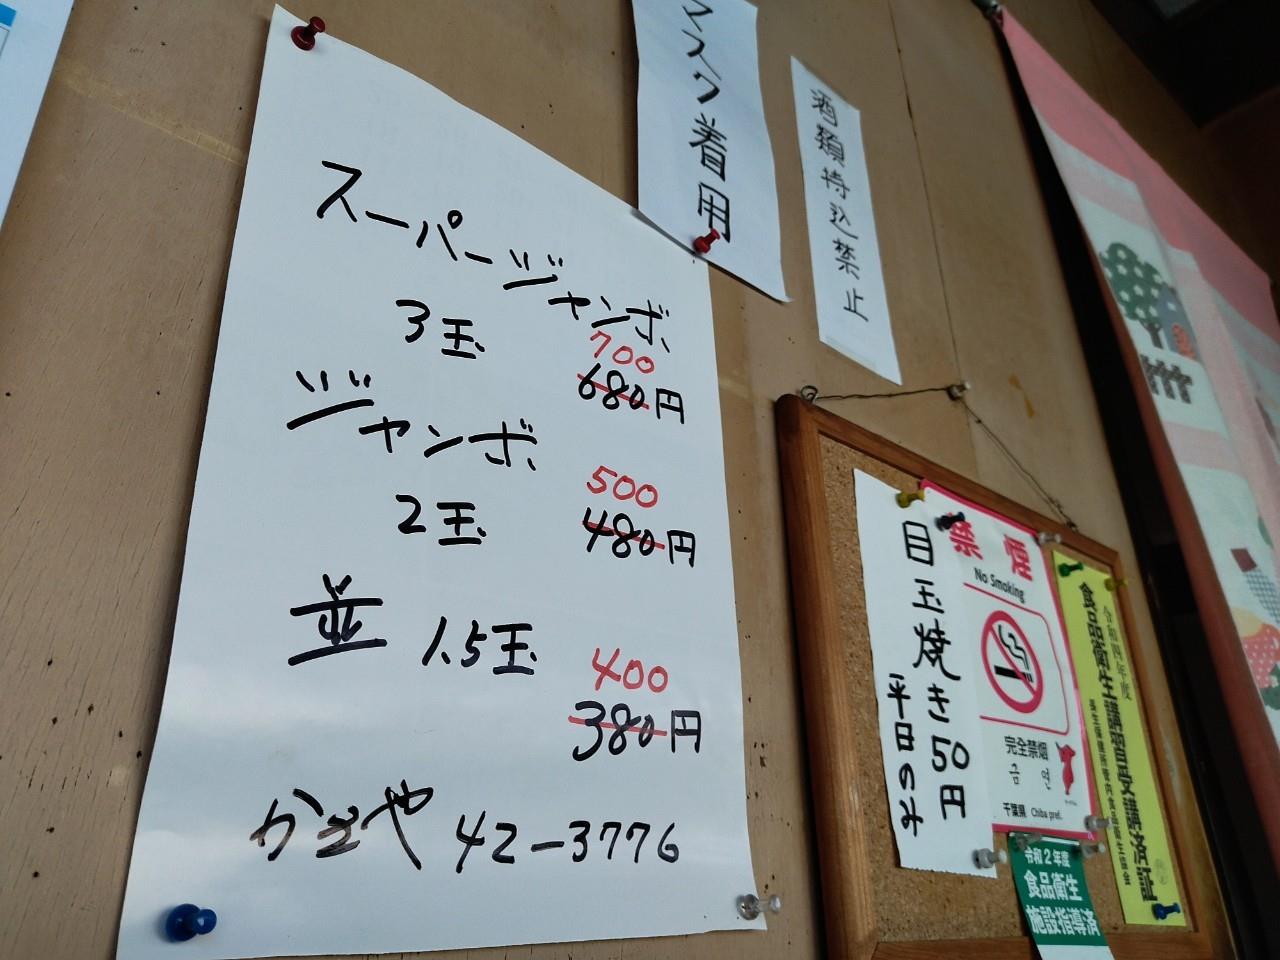 スーパージャンボ
3玉
700
680円
ジャンボ
2玉
500
480円
並 1.5玉
400
380円
かをや 42-3776
マスク着用
酒類持込禁止
目玉焼き50円
平日のみ
禁煙
No Smoking
完全禁烟
금연
千葉県 Chiba pref.
令和四年度
食品衛生講習受講済証
令和2年度
食品衛生
施設指導済